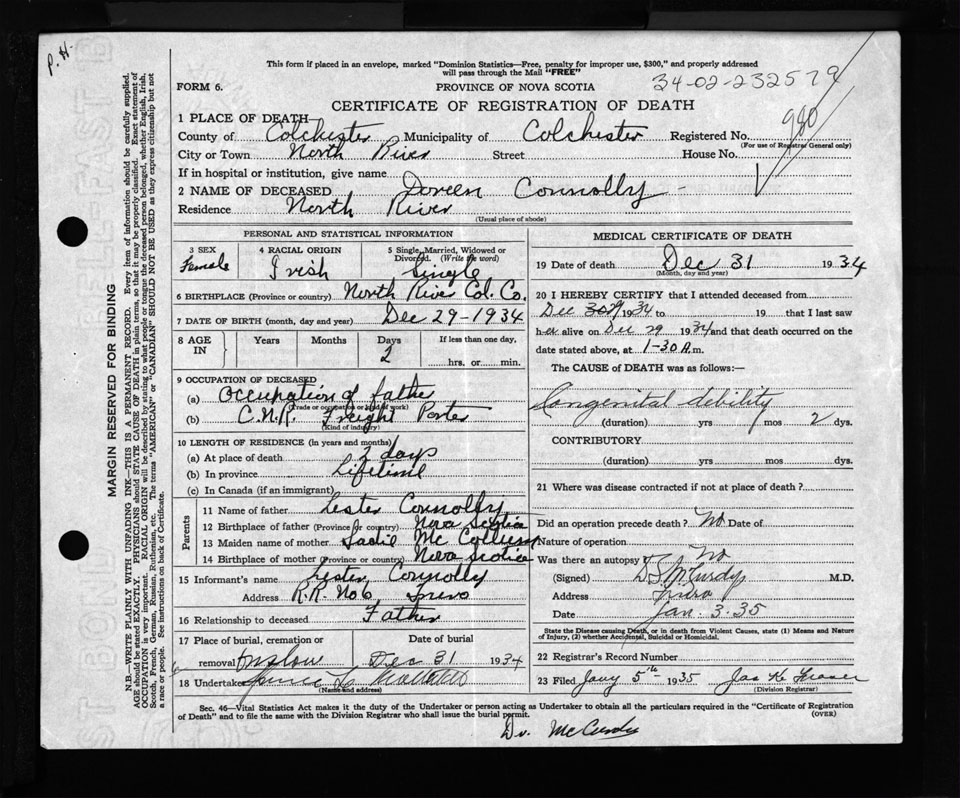 P. H.
This form if placed in an envelope, marked "Dominion Statistics—Free, penalty for improper use, $300," and properly addressed
will pass through the Mail "FREE"
FORM 6.
PROVINCE OF NOVA SCOTIA
34-02-232579
CERTIFICATE OF REGISTRATION OF DEATH
980
1 PLACE OF DEATH
County of Colchester Municipality of Colchester Registered No.
(For use of Registrar General only)
City or Town North River Street House No.
If in hospital or institution, give name
2 NAME OF DECEASED Doreen Connolly
Residence North River
(Usual place of abode)
PERSONAL AND STATISTICAL INFORMATION
3 SEX Female
4 RACIAL ORIGIN Irish
5 Single, Married, Widowed or Divorced. (Write the word) Single
6 BIRTHPLACE (Province or country) North River Col. Co.
7 DATE OF BIRTH (month, day and year) Dec 29-1934
8 AGE IN Years Months Days 2 If less than one day, hrs. or min.
9 OCCUPATION OF DECEASED
(a) Occupation of father
(Trade or occupation or kind of work)
(b) C.N.R. Freight Porter
(Kind of industry)
10 LENGTH OF RESIDENCE (in years and months)
(a) At place of death 2 days
(b) In province Lifetime
(c) In Canada (if an immigrant)
Parents
11 Name of father Lester Connolly
12 Birthplace of father (Province or country) Nova Scotia
13 Maiden name of mother Sadie McCollum
14 Birthplace of mother (Province or country) Nova Scotia
15 Informant's name Lester Connolly
Address R.R. No 6, Truro
16 Relationship to deceased Father
17 Place of burial, cremation or removal Onslow
Date of burial Dec 31 1934
18 Undertaker
(Name and address)
MEDICAL CERTIFICATE OF DEATH
19 Date of death Dec 31 1934
(Month, day and year)
20 I HEREBY CERTIFY that I attended deceased from
Dec 29 1934 to 19 that I last saw
her alive on Dec 29 1934 and that death occurred on the
date stated above, at 1-30 A.m.
The CAUSE of DEATH was as follows:—
Congenital debility
(duration) yrs mos 2 dys.
CONTRIBUTORY
(duration) yrs. mos. dys.
21 Where was disease contracted if not at place of death?
Did an operation precede death? No Date of
Nature of operation
Was there an autopsy No
(Signed) D S McCurdy M.D.
Address Truro
Date Jan. 3. 35
State the Disease causing Death, or in death from Violent Causes, state (1) Means and Nature of Injury, (2) whether Accidental, Suicidal or Homicidal.
22 Registrar's Record Number
23 Filed Jany 5th 1935 Jas K Fraser
(Division Registrar)
Sec. 46—Vital Statistics Act makes it the duty of the Undertaker or person acting as Undertaker to obtain all the particulars required in the "Certificate of Registration
of Death" and to file the same with the Division Registrar who shall issue the burial permit.
(OVER)
Dr. McCurdy
MARGIN RESERVED FOR BINDING
N.B.—WRITE PLAINLY WITH UNFADING INK—THIS IS A PERMANENT RECORD. Every item of information should be carefully supplied.
AGE should be stated EXACTLY. PHYSICIANS should STATE CAUSE OF DEATH in plain terms, so that it may be properly classified. Exact statement of
OCCUPATION is very important. RACIAL ORIGIN will be described by stating to what people or tongue the deceased person belonged, whether English, Irish,
Scotch, French, German, Russian, Ruthenian, etc. The terms "AMERICAN" or "CANADIAN" SHOULD NOT BE USED as they express citizenship but not
a race or people. See instructions on back of Certificate.